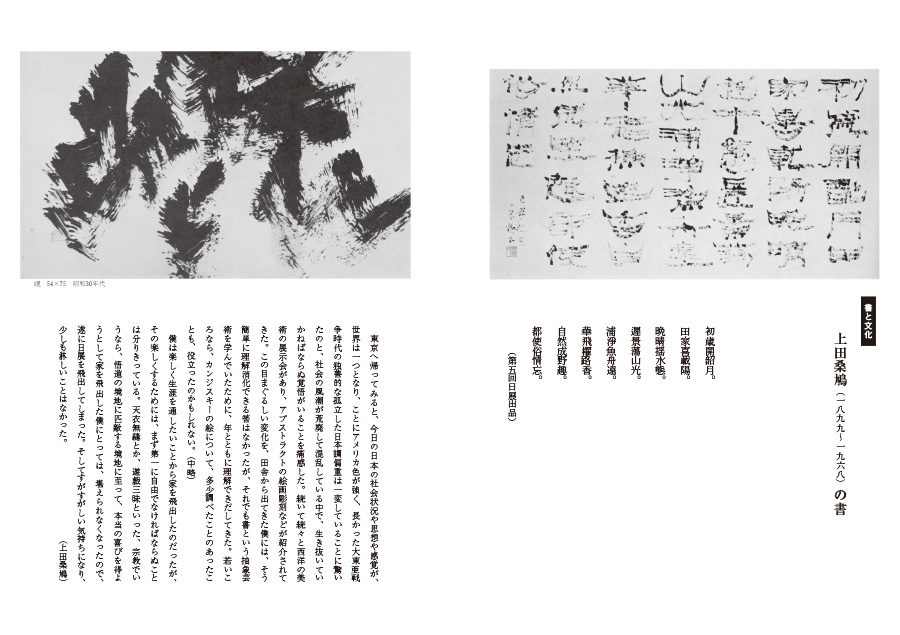 書と文化
上田桑鳩（一八九九〜一九六八）の書
初歳開韶月。
田家喜載陽。
晩晴揺水態。
遅景蕩山光。
浦浄漁舟遠。
華飛樵路香。
自然成野趣。
都使俗情忘。
（第五回日展出品）
東京へ帰ってみると、今日の日本の社会状況や思想や感覚が、
世界は一つとなり、ことにアメリカ色が強く、長かった大東亜戦
争時代の独善的な孤立した日本調偏重は一変していることに驚い
たのと、社会の風潮が荒廃して混乱している中で、生き抜いてい
かねばならぬ覚悟がいることを痛感した。続いて続々と西洋の美
術の展示会があり、アブストラクトの絵画彫刻などが紹介されて
きた。この目まぐるしい変化を、田舎から出てきた僕には、そう
簡単に理解消化できる筈はなかったが、それでも書という抽象芸
術を学んでいたために、年とともに理解できだしてきた。若いこ
ろなら、カンジンスキーの絵について、多少調べたことのあったこ
とも、役立ったのかもしれない。（中略）
僕は楽しく生涯を通したいことから家を飛出したのだったが、
その楽しくするためには、まず第一に自由でなければならぬこと
は分りきっている。天衣無縫とか、遊戯三昧といった、宗教でい
うなら、悟道の境地に匹敵する境地に至って、本当の喜びを得よ
うとして家を飛出した僕にとっては、堪えられなくなったので、
遂に日展を飛出してしまった。そしてすがすがしい気持ちになり、
少しも淋しいことはなかった。
（上田桑鳩）
54×75　昭和30年代